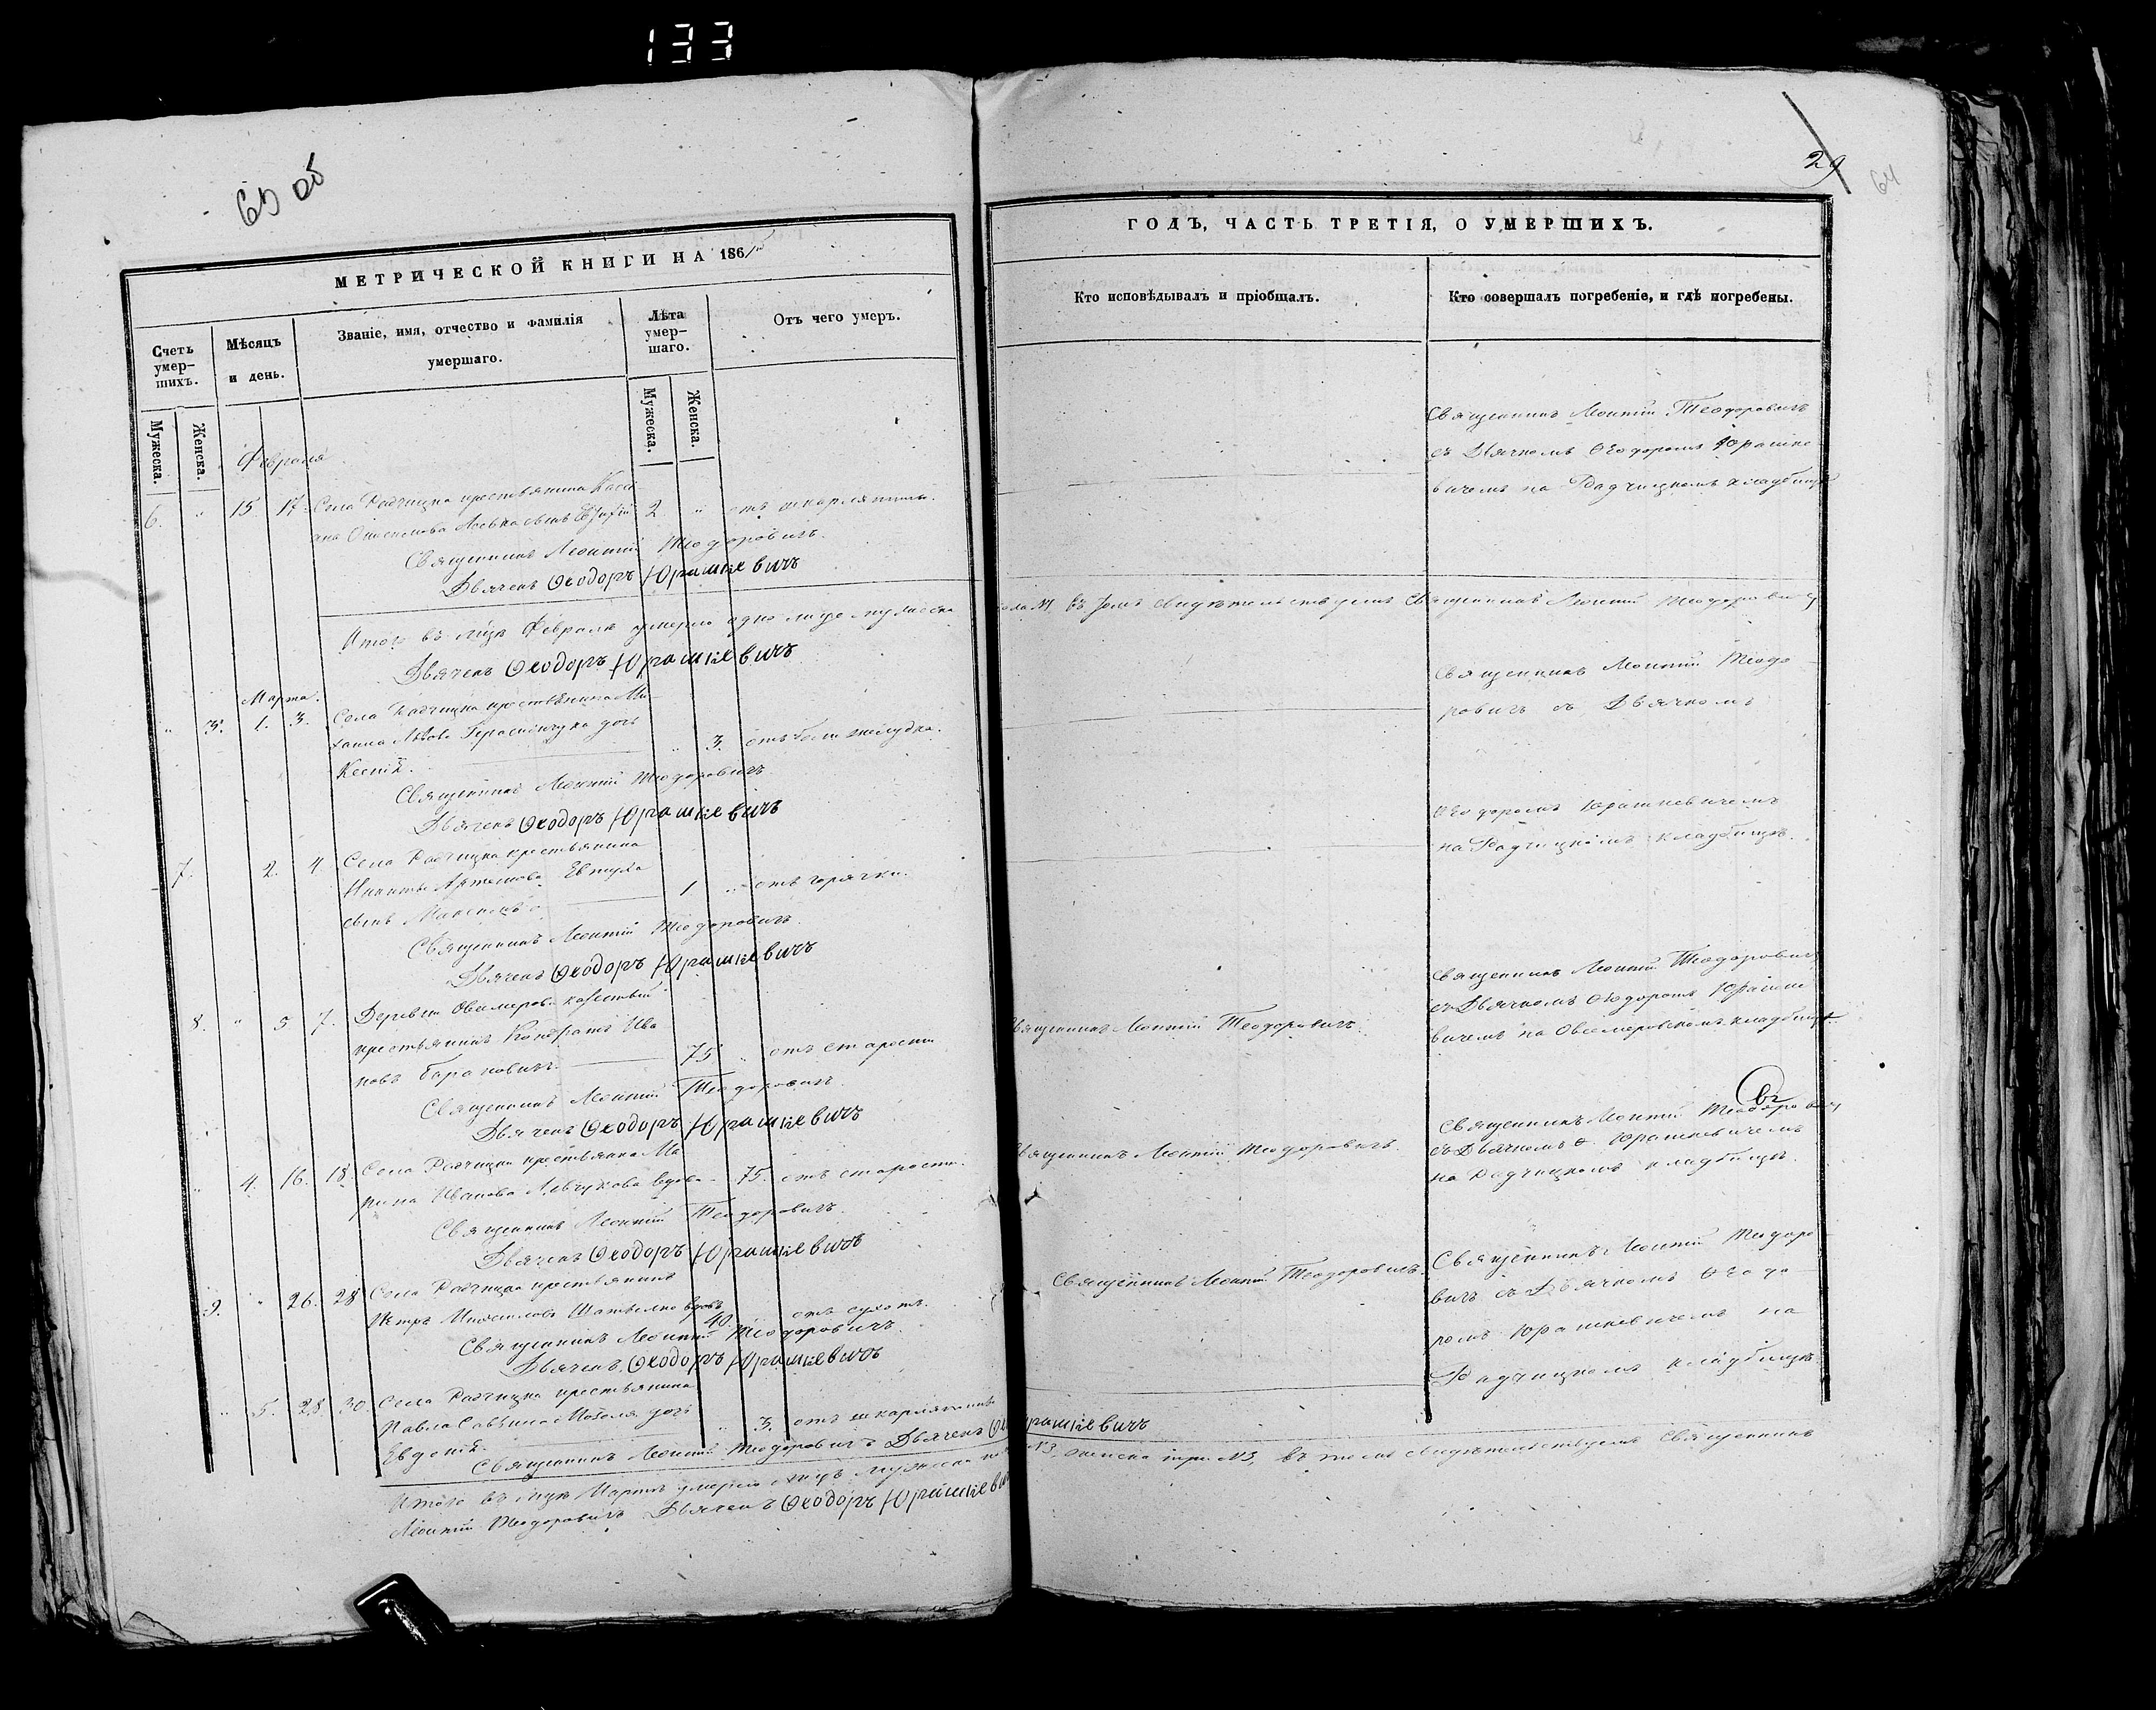 133
63 об
29
64
МЕТРИЧЕСКОЙ КНИГИ НА 186
Счетъ умер-шихъ.
Мѣсяцъ и день.
Званіе, имя, отчество и фамилія умершаго.
Лѣта умер-шаго.
Отъ чего умеръ.
Мужеска.
Женска.
Мужеска.
Женска.
Февраля
6. " 15 17 Села Радчицка крестьянина
Левка сынъ 2 " отъ шкарлятины.
Священникъ Леонтій Теодоровичъ.
Дьячекъ Ѳеодоръ Юрашкевичъ
Итого въ мцѣ Февралѣ умерло одно лице мужеска
Дьячекъ Ѳеодоръ Юрашкевичъ
Марта.
" 3. 1. 3. Села Радчицка крестьянина Ми-
хаила Львова Герасимчука дочь
Ксенія. " 3. отъ боли желудка.
Священникъ Леонтій Теодоровичъ
Дьячекъ Ѳеодоръ Юрашкевичъ
7. 2. 4 Села Радчицка крестьянина
Никиты Артемова Евтуха
сынъ 1 " отъ горячки.
Священникъ Леонтій Теодоровичъ.
Дьячекъ Ѳеодоръ Юрашкевичъ
8. " 5 7. Деревни
крестьянинъ Кондратъ Ива
новъ Барановичъ. 75 " отъ старости
Священникъ Леонтій Теодоровичъ.
Дьячекъ Ѳеодоръ Юрашкевичъ
" 4. 16. 18. Села Радчицка крестьянка Ма
рина Иванова Левчукова вдова 75. отъ старости.
Священникъ Леонтій Теодоровичъ.
Дьячекъ Ѳеодоръ Юрашкевичъ
9. " 26. 28 Села Радчицка крестьянинъ
Петръ вдовъ 40. отъ сухотъ.
Священникъ Леонтій Теодоровичъ.
Дьячекъ Ѳеодоръ Юрашкевичъ
" 5. 28. 30. Села Радчицка крестьянина
Павла Савина дочь
Евдокія. " 3. отъ шкарлятины
Священникъ Леонтій Теодоровичъ Дьячекъ Ѳеодоръ Юрашкевичъ
Итого въ мцѣ Мартѣ умерло лицъ мужеска
Леонтій Теодоровичъ Дьячекъ Ѳеодоръ Юрашкевичъ
ГОДЪ, ЧАСТЬ ТРЕТІЯ, О УМЕРШИХЪ.
Кто исповѣдывалъ и пріобщалъ.
Кто совершалъ погребеніе, и гдѣ погребены.
Священникъ Леонтій Теодоровичъ
съ Дьячкомъ Ѳеодоромъ Юрашке
вичемъ на Радчицкомъ кладбищѣ
въ томъ свидѣтельствуемъ Священникъ Леонтій Теодоровичъ
Священникъ Леонтій Теодо
ровичъ съ Дьячкомъ
Ѳеодоромъ Юрашкевичемъ
на Радчицкомъ кладбищѣ.
Священникъ Леонтій Теодоровичъ.
Священникъ Леонтій Теодоровичъ
съ Дьячкомъ Ѳеодоромъ Юрашке
вичемъ на кладбищѣ
Священникъ Леонтій Теодоровичъ.
Священникъ Леонтій Теодоровичъ
съ Дьячкомъ Ѳ. Юрашкевичемъ
на Радчицкомъ кладбищѣ.
Священникъ Леонтій Теодоровичъ.
Священникъ Леонтій Теодоро
вичъ съ Дьячкомъ Ѳеодо
ромъ Юрашкевичемъ на
Радчицкомъ кладбищѣ.
№3, женска три №3, въ томъ свидѣтельствуемъ Священникъ